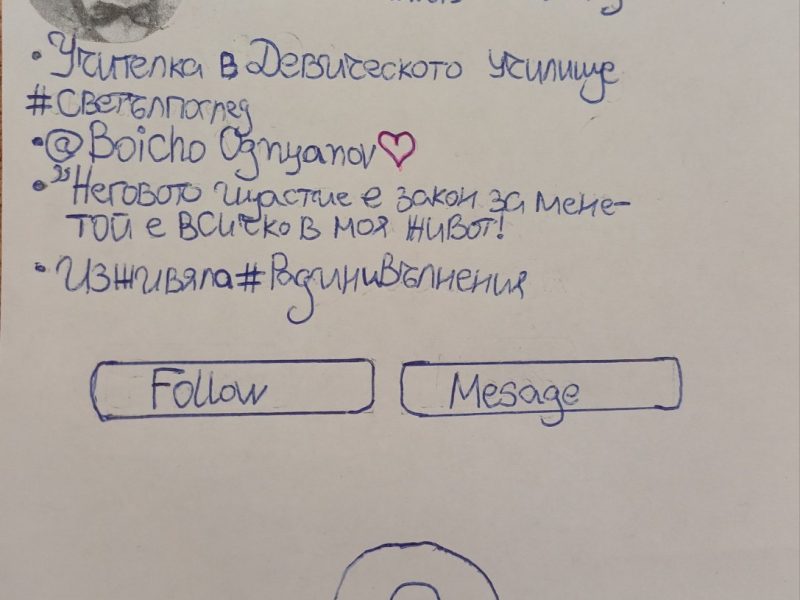 • Учителка в Девическото училище
#Светълпоглед
• @Boicho Ognyanov
• "Неговото щастие е закон за мене-
той е всичко в моя живот!
• Изживяла #РадиниВълнения
Follow Mesage